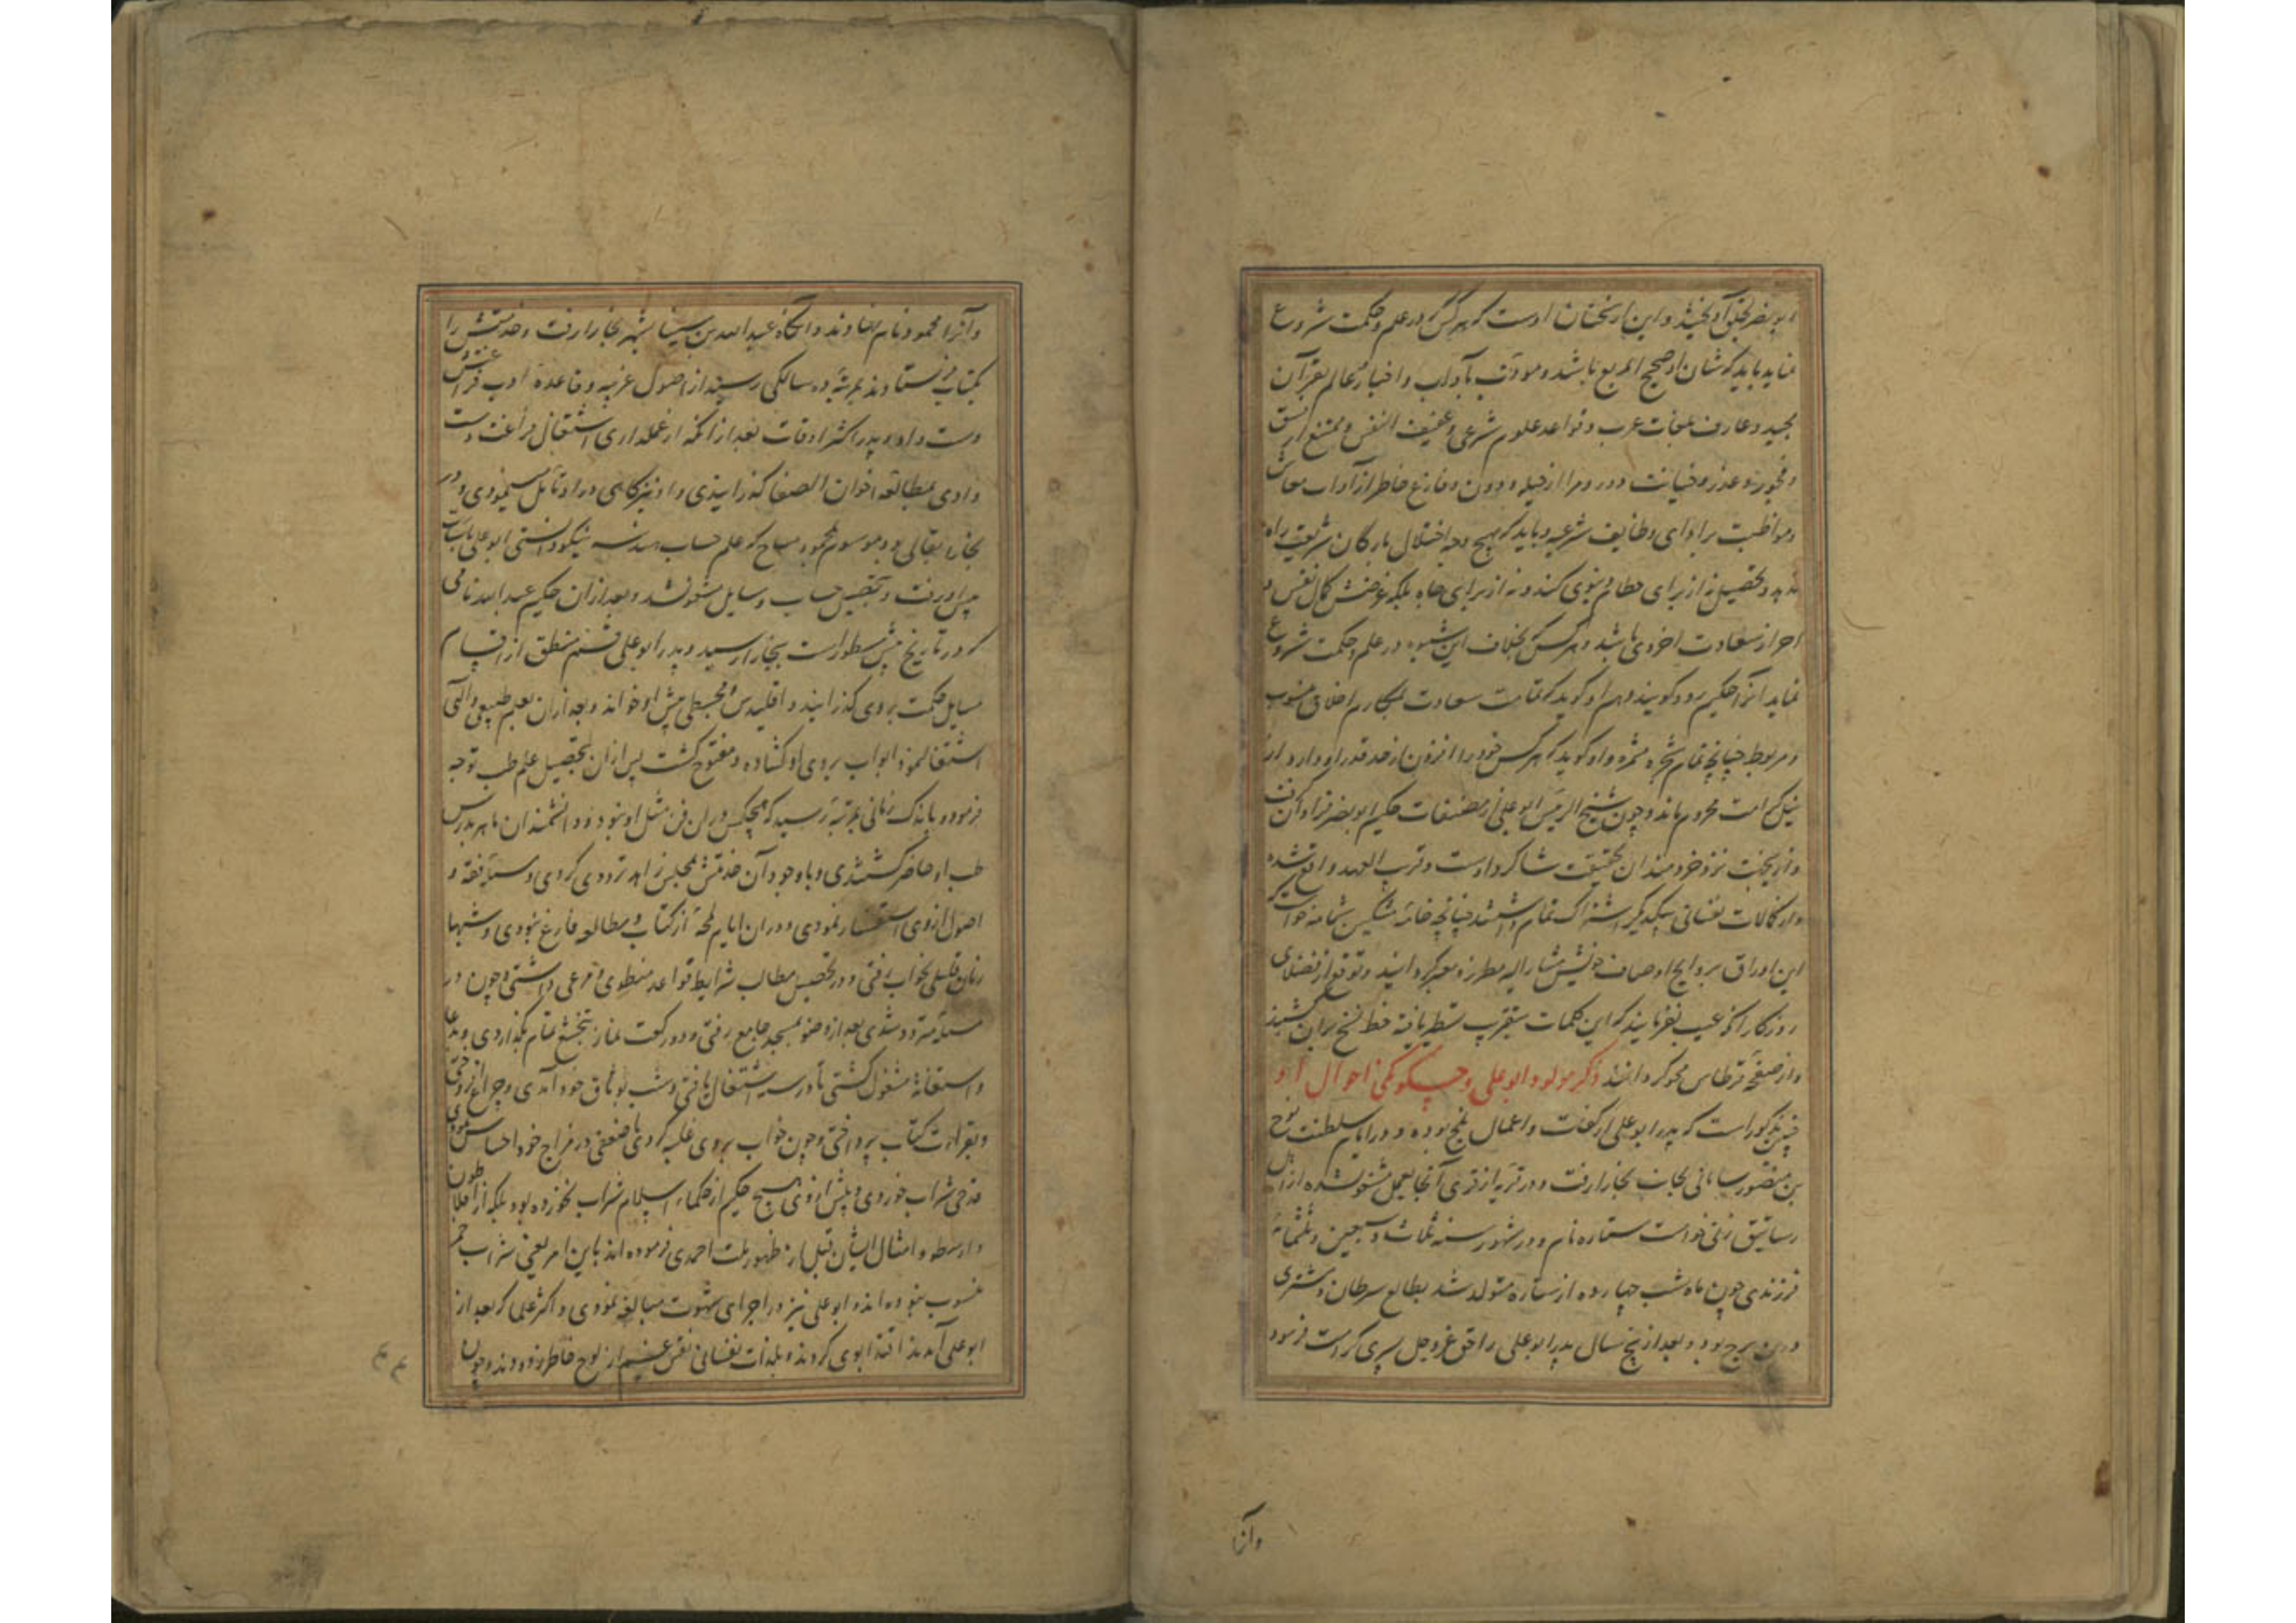 ابونصر بخلق آویخت و این از سخنان اوست که هر کس که در علم و حکمت شروع
نماید باید که شان او صحیح المزاج باشد و مودب بآداب و اخیار و عالم بقرآن
مجید و عارف بلغات عرب و قواعد علوم شرعی و عفیف النفس و ممتنع از فسق
و فجور و غدر و خیانت دور و مبرا از حیله و و فارغ خاطر از آداب معاش
و مواظبت بر ادای وظایف شرعیه و باید که بهیچ وجه اختلال بارکان شریعت راه
ندهد و تحصیل نه از برای حطام دنیوی کند و نه از برای جاه بلکه غرضش کمال نفس و
احراز سعادت اخروی باشد و هر کس بخلاف این شیوه در علم و حکمت شروع
نماید انرا حکیم گویند و هم او گوید که تمامیت سعادت بمکارم اخلاق منسوب
و مربوط چنانچه تمام شجره بثمره و او گوید که هر کس خود را افزون از حد قدر او دارد از
نیل کرامت محروم ماند و چون شیخ الرییس ابوعلی از مصنفات حکیم ابونصر فراوان گرفت
و از بجهت نزد خردمندان بحقیقت شاکرد اوست و قریب العهد واقع شده
و از کمالات نفسانی بیکدیگر اشتراک تمام داشتند چنانچه خامه مشکین شمامه خواست که
این اوراق بروایح اوصاف خویش مشار الیه مطرز و معنبر گرداند و توقع از فضلای
روزگار آنکه عیب نفرمایند که این کلمات بتقریب تسطیر یافته خط نسخ بران نکشند
و از صفحه قرطاس محو نگردانند ذکر مولود ابوعلی و چکونگی احوال او
چنین مذکور است که پدر ابوعلی از کفات و اعمال بلخ بوده و در ایام سلطنت نوح
بن منصور سامانی بجانب بخارا رفت و در قریه از قری آنجا بعمل مشغول شده از اهل
رساتیق زنی خواست ستاره نام و در شهور سنه ثلث و سبعین و ثلثمائه
فرزندی چون ماه شب چهارده از ستاره متولد شد بطالع سرطان و مشتری
درین برج بود و بعد از پنج سال پدر ابوعلی را حق عز و جل پسری کرامت فرمود
و آنرا
و آنرا محمود نام نهادند و انگاه عبدالله بن سینا بشهر بخارا رفت و خدمتش را
بکتاب فرستادند بمرتبه ده سالگی رسید از اصول عربیه و قاعده ادب فراغتش
دست داد و پدر اکثر اوقات بعد از انکه از عملداری اشتغال فراغت دست
دادی بمطالعه اخوان الصفا گذرانیدی و او نیز گاهی در او تامل مینمودی و در
بخارا بقالی بود موسوم بمحمود مساح که علم حساب و هندسه نیکو دانستی ابوعلی
پیش او رفت و بتحصیل حساب و مسایل مشغول شد و بعد از آن حکیم عبدالله ناتلی
که در تاریخ پیش مسطور است ببخارا رسید و پدر ابوعلی قسم منطق از اقسام
مسایل حکمت بر وی گذرانید و اقلیدس و مجسطی پیش او خواند و بعد از ان بعلم طبیعی و الهی
اشتغال نمود ابواب بر وی او گشاده و مفتوح گشت پس از ان بتحصیل علم طب توجه
فرموده و باندک زمانی بمرتبه رسید که هیچکس در ان فن مثل او نبود و دانشمندان ماهر بدرس
طب او حاضر گشتندی و با وجود آن خدمتش بمجلس زاهد تردد کردی و مسایل فقه و
اصول از وی استفسار نمودی و در ان ایام یک لمحه از کتاب و مطالعه فارغ نبودی و شبها
زمان قلیلی بخواب رفتی و در تحصیل مطالب شرایط قواعد منطقی مرعی داشتی و چون در
مسئله متردد شدی بعد از وضو بمسجد جامع رفتی و دو رکعت نماز بتخشع تمام بگذاردی و بدعا
و استغاثه مشغول گشتی تا در سر اشتغال یافتی و شب بوثاق خود آمدی و چراغ افروختی
و بقراءت کتاب پرداختی و چون خواب بر وی غلبه کردی یا ضعفی در مزاج خود احساس نمودی
قدحی شراب خوردی و پیش از وی هیچ حکیم از حکماء اسلام شراب نخورده بود بلکه از افلاطون
و ارسطو و امثال ایشان قبل از ظهور ملت احمدی فرموده اند باین امر یعنی شراب خمر
منسوب نبوده اند و ابوعلی نیز در اجرای شهوت مبالغه نمودی و اکثر علما که بعد از
ابوعلی آمدند اقتدا بوی کردند و بلذات نفسانی نقش از لوح خاطر زدودند و چون